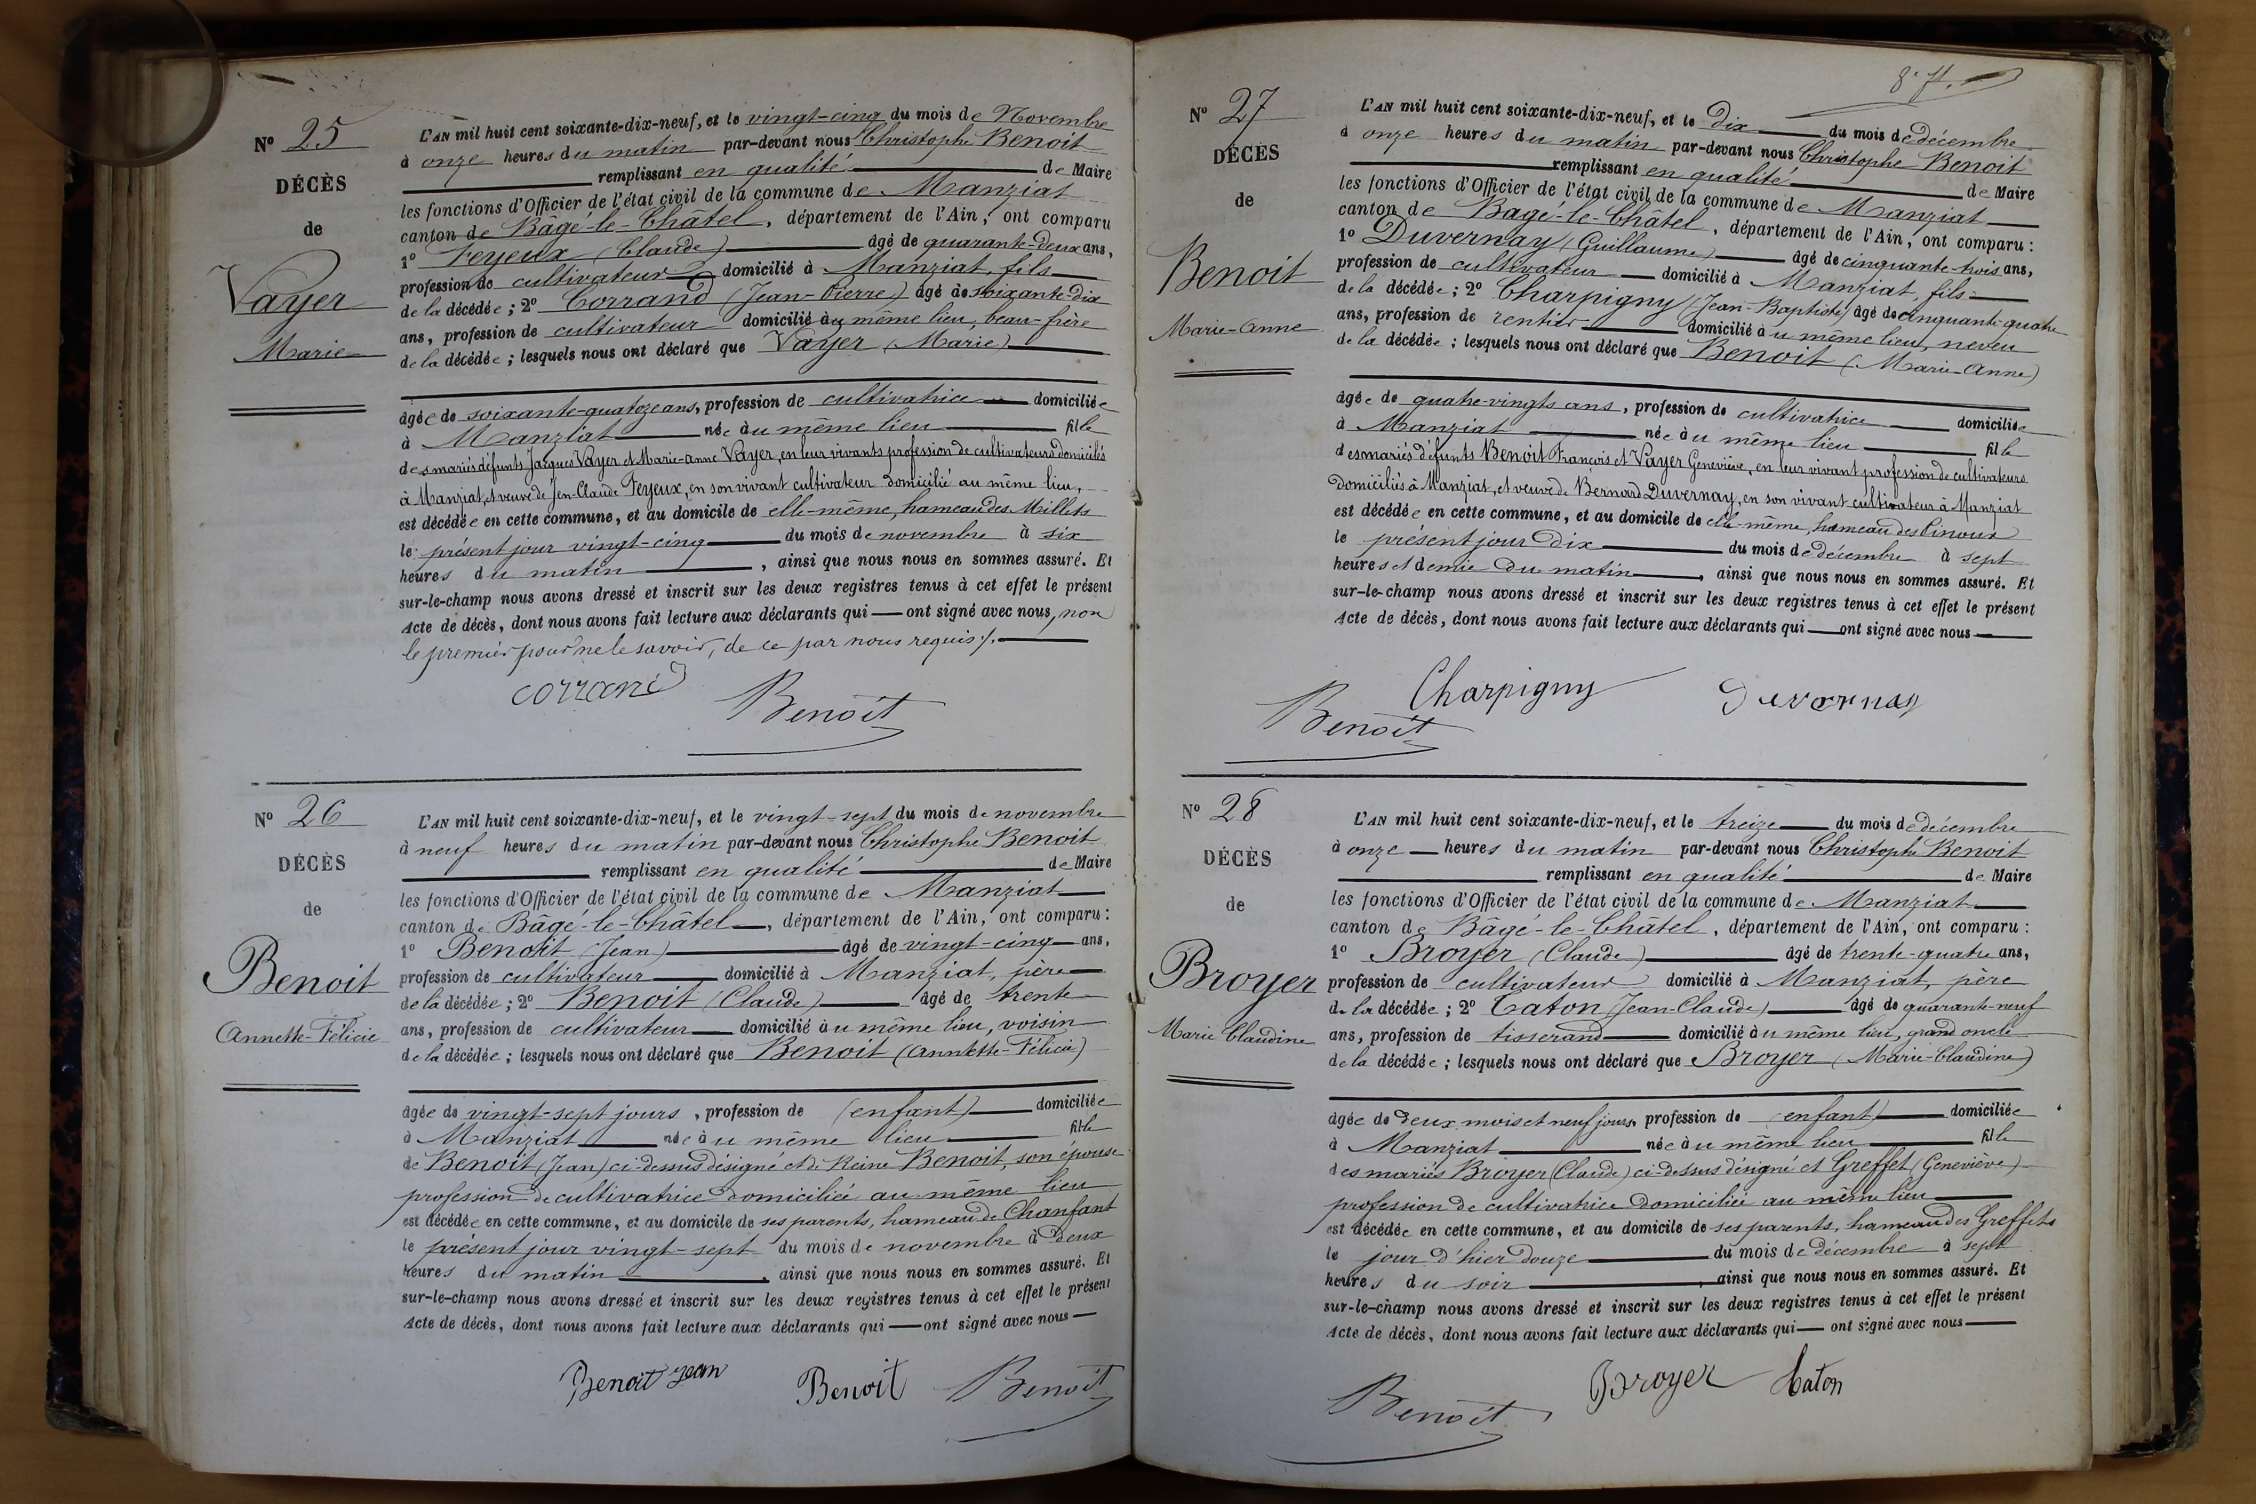 Nº 25
DÉCÈS
de
Vayer
Marie
L'AN mil huit cent soixante-dix-neuf, et le vingt-cinq du mois de Novembre
à onze heures du matin par-devant nous Christophe Benoit
remplissant en qualité de Maire
les fonctions d'Officier de l'état civil de la commune de Manziat
canton de Bâgé-le-Châtel, département de l'Ain, ont comparu
1º Feyeux (Claude) âgé de quarante-deux ans,
profession de cultivateur domicilié à Manziat, fils
de la décédée ; 2º Corrand (Jean-Pierre) âgé de soixante-dix
ans, profession de cultivateur domicilié au même lieu, beau-frère
de la décédée ; lesquels nous ont déclaré que Vayer (Marie)
âgée de soixante-quatoze ans, profession de cultivatrice domiciliée
à Manziat née au même lieu fille
des mariés défunts Jacques Vayer et Marie-Anne Vayer, en leur vivants profession de cultivateurs domiciliés
à Manziat, et veuve de Jen-Claude Feyeux, en son vivant cultivateur domicilié au même lieu,
est décédée en cette commune, et au domicile de elle-même, hameau des Millets
le présent jour vingt-cinq du mois de novembre à six
heures du matin, ainsi que nous nous en sommes assuré. Et
sur-le-champ nous avons dressé et inscrit sur les deux registres tenus à cet effet le présent
Acte de décès, dont nous avons fait lecture aux déclarants qui — ont signé avec nous, non
le premier pour ne le savoir, de ce par nous requis ./.
corrand
Benoit
Nº 26
DÉCÈS
de
Benoit
Annette-Félicie
L'AN mil huit cent soixante-dix-neuf, et le vingt-sept du mois de novembre
à neuf heures du matin par-devant nous Christophe Benoit
remplissant en qualité de Maire
les fonctions d'Officier de l'état civil de la commune de Manziat
canton de Bâgé-le-Châtel, département de l'Ain, ont comparu :
1º Benoit (Jean) âgé de vingt-cinq ans,
profession de cultivateur domicilié à Manziat, père
de la décédée ; 2º Benoit (Claude) âgé de trente
ans, profession de cultivateur domicilié au même lieu, voisin
de la décédée ; lesquels nous ont déclaré que Benoit (Annette-Félicie)
âgée de vingt-sept jours, profession de (enfant) domiciliée
à Manziat née au même lieu fille
de Benoit (Jean) ci-dessus désigné et de Reine Benoit, son épouse
profession de cultivatrice domiciliée au même lieu
est décédée en cette commune, et au domicile de ses parents, hameau de Chanfant
le présent jour vingt-sept du mois de novembre à deux
heures du matin, ainsi que nous nous en sommes assuré. Et
sur-le-champ nous avons dressé et inscrit sur les deux registres tenus à cet effet le présent
Acte de décès, dont nous avons fait lecture aux déclarants qui — ont signé avec nous —
Benoit Jean
Benoit
Benoit
8e f.
Nº 27
DÉCÈS
de
Benoit
Marie-Anne
L'AN mil huit cent soixante-dix-neuf, et le dix du mois de décembre
à onze heures du matin par-devant nous Christophe Benoit
remplissant en qualité de Maire
les fonctions d'Officier de l'état civil de la commune de Manziat
canton de Bagé-le-Châtel, département de l'Ain, ont comparu :
1º Duvernay (Guillaume) âgé de cinquante-trois ans,
profession de cultivateur domicilié à Manziat, fils
de la décédée ; 2º Charpigny (Jean-Baptiste) âgé de cinquante-quatre
ans, profession de rentier domicilié au même lieu, neveu
de la décédée ; lesquels nous ont déclaré que Benoit (Marie-Anne)
âgée de quatre-vingts ans, profession de cultivatrice domiciliée
à Manziat née au même lieu fille
des mariés défunts Benoit François et Vayer Geneviève, en leur vivant profession de cultivateurs
domiciliés à Manziat, et veuve de Bernard Duvernay, en son vivant cultivateur à Manziat
est décédée en cette commune, et au domicile de elle-même, hameau des Pinoux
le présent jour dix du mois de décembre à sept
heures et demie du matin, ainsi que nous nous en sommes assuré. Et
sur-le-champ nous avons dressé et inscrit sur les deux registres tenus à cet effet le présent
Acte de décès, dont nous avons fait lecture aux déclarants qui — ont signé avec nous —
Charpigny
Duvornay
Benoit
Nº 28
DÉCÈS
de
Broyer
Marie Claudine
L'AN mil huit cent soixante-dix-neuf, et le treize du mois de décembre
à onze heures du matin par-devant nous Christophe Benoit
remplissant en qualité de Maire
les fonctions d'Officier de l'état civil de la commune de Manziat
canton de Bâgé-le-Châtel, département de l'Ain, ont comparu :
1º Broyer (Claude) âgé de trente-quatre ans,
profession de cultivateur domicilié à Manziat, père
de la décédée ; 2º Caton (Jean-Claude) âgé de quarante-neuf
ans, profession de tisserand domicilié au même lieu, grand oncle
de la décédée ; lesquels nous ont déclaré que Broyer (Marie-Claudine)
âgée de deux mois et neuf jours, profession de (enfant) domiciliée
à Manziat née au même lieu fille
des mariés Broyer (Claude) ci-dessus désigné et Greffet (Geneviève)
profession de cultivatrice domiciliée au même lieu
est décédée en cette commune, et au domicile de ses parents, hameau des Greffets
le jour d'hier douze du mois de décembre à sept
heures du soir, ainsi que nous nous en sommes assuré. Et
sur-le-champ nous avons dressé et inscrit sur les deux registres tenus à cet effet le présent
Acte de décès, dont nous avons fait lecture aux déclarants qui — ont signé avec nous —
Broyer
Caton
Benoit